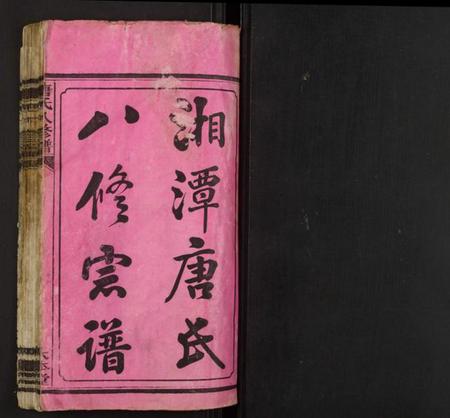 湘潭唐氏
八修宗谱
唐氏八修譜